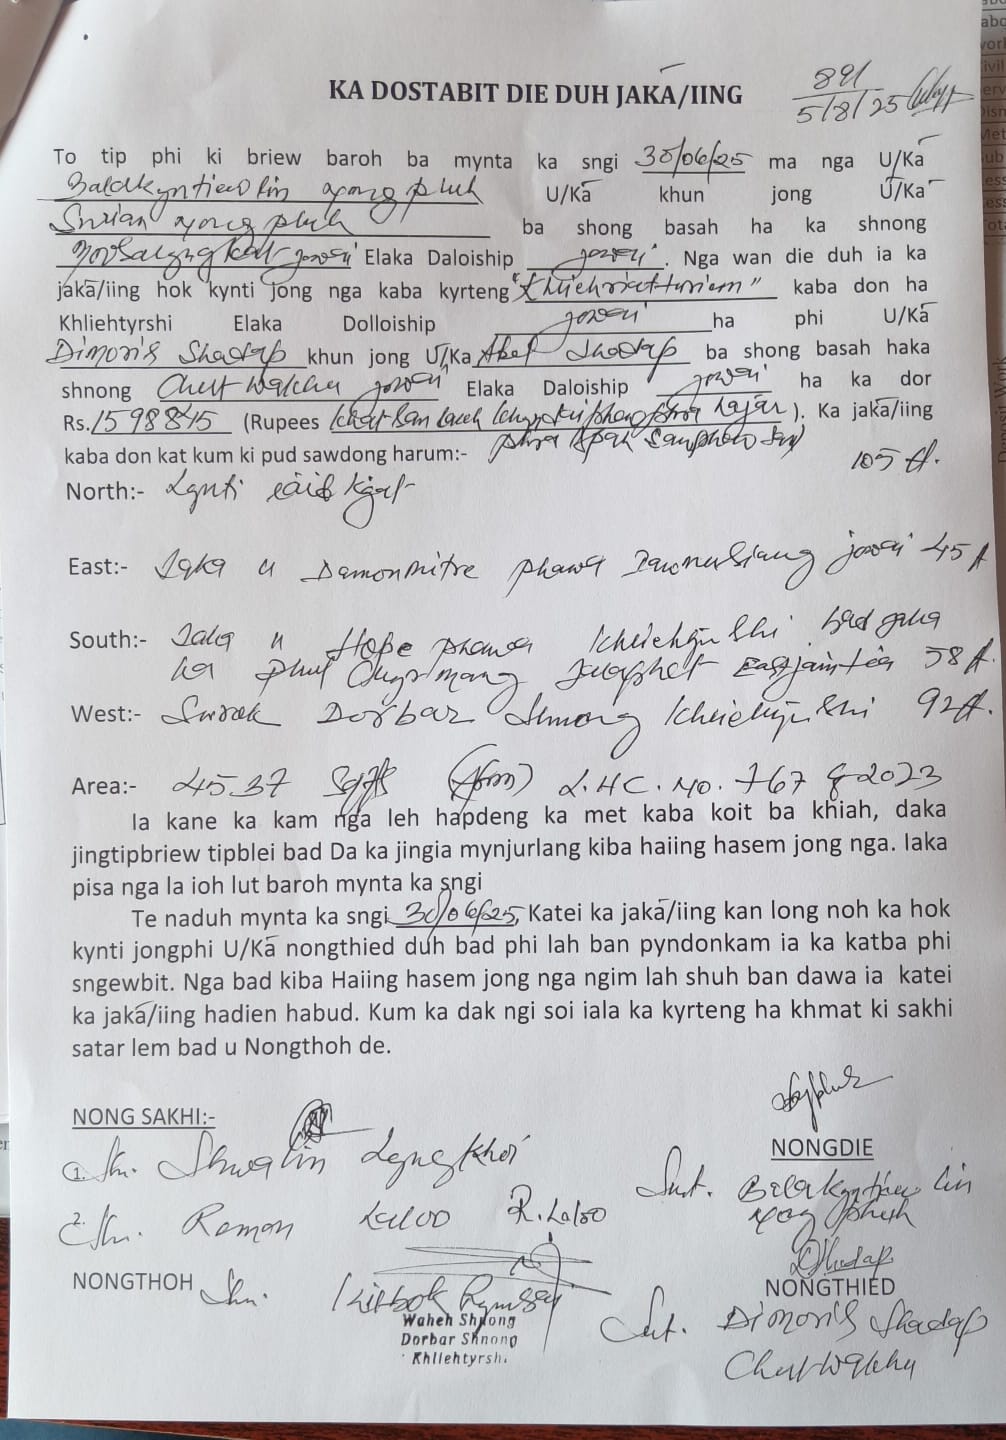 KA DOSTABIT DIE DUH JAKĀ/IING
891
5/8/25
To tip phi ki briew baroh ba mynta ka sngi 30/06/25 ma nga U/Kā
Baldkyntiew lin yong pluh U/Kā khun jong U/Kā
Surian yong pluh ba shong basah ha ka shnong
Jowai Elaka Daloiship Jowai. Nga wan die duh ia ka
jakā/iing hok kynti jong nga kaba kyrteng "Khliehriatturiem" kaba don ha
Khliehtyrshi Elaka Dolloiship Jowai ha phi U/Kā
Dimoris Shadap khun jong U/Ka Abel Shadap ba shong basah haka
shnong Chutwakhu Jowai Elaka Daloiship Jowai ha ka dor
Rs. 1598845 (Rupees khat san lakh hajar). Ka jakā/iing
phra spah sanphew san
kaba don kat kum ki pud sawdong harum:-
North:- Lynti iaid kjat 105 ft.
East:- Jaka u Damonmitre Phawa Jowai 45 ft
South:- Jaka u Hope Phawa Khliehtyrshi bad jaka
ka Phul East Jaintia 58 ft.
West:- Surok Dorbar Shnong Khliehtyrshi 92 ft.
Area:- 4537 Sqft L.HC. NO. 767 of 2023
Ia kane ka kam nga leh hapdeng ka met kaba koit ba khiah, daka
jingtipbriew tipblei bad Da ka jingia mynjurlang kiba haiing hasem jong nga. Iaka
pisa nga la ioh lut baroh mynta ka sngi
Te naduh mynta ka sngi 30/06/25, Katei ka jakā/iing kan long noh ka hok
kynti jongphi U/Kā nongthied duh bad phi lah ban pyndonkam ia ka katba phi
sngewbit. Nga bad kiba Haiing hasem jong nga ngim lah shuh ban dawa ia katei
ka jakā/iing hadien habud. Kum ka dak ngi soi iala ka kyrteng ha khmat ki sakhi
satar lem bad u Nongthoh de.
NONG SAKHI:-
1. Shri. Shwalin Lyngkhoi
NONGDIE
Smt. Baldkyntiew lin
yong pluh
2. Shri. Roman Laloo R. Laloo
DShadap
NONGTHIED
NONGTHOH Shri. Kitbok Rymbai
Smt. Dimoris Shadap
Chutwakhu
Waheh Shnong
Dorbar Shnong
Khliehtyrshi